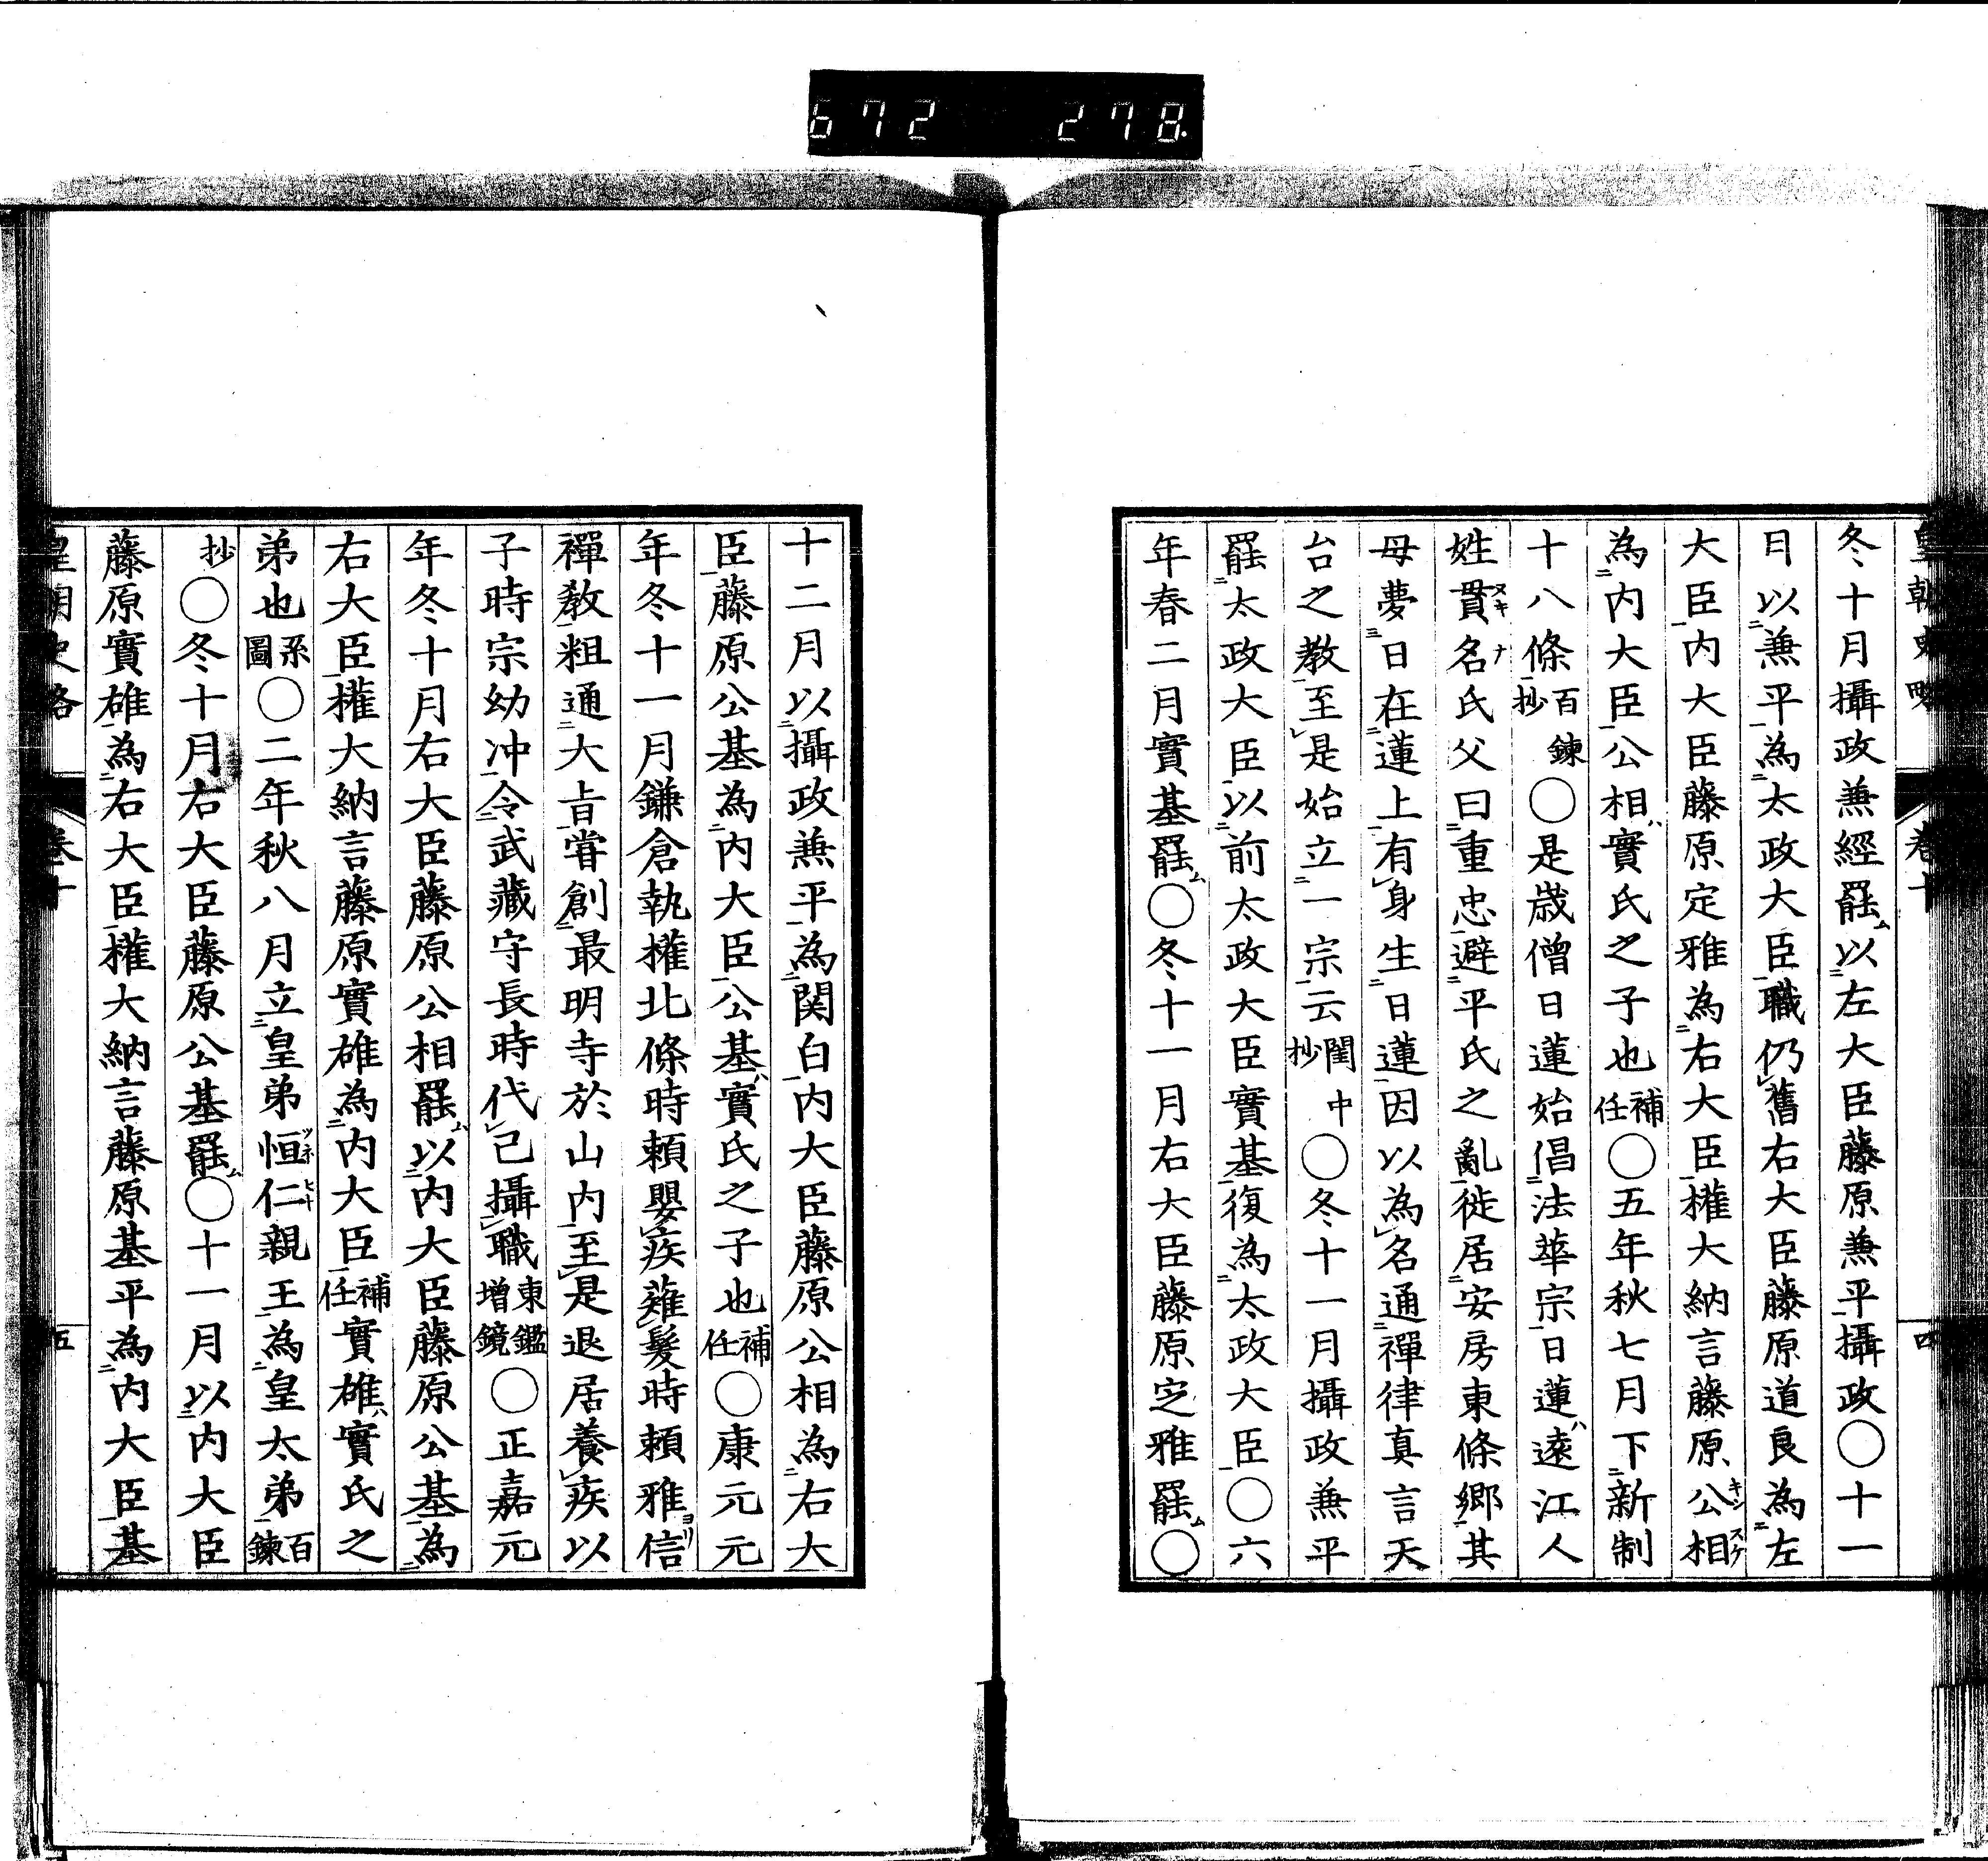 672 278
皇朝史略 卷十 四
冬十月攝政兼經罷以左大臣藤原兼平攝政〇十一
月以兼平為太政大臣職仍舊右大臣藤原道良為左
大臣内大臣藤原定雅為右大臣權大納言藤原公相
為内大臣公相實氏之子也補任〇五年秋七月下新制
十八條百鍊抄〇是歳僧日蓮始倡法華宗日蓮遠江人
姓貫名氏父曰重忠避平氏之亂徙居安房東條鄉其
母夢日在蓮上有身生日蓮因以為名通禪律真言天
台之教至是始立一宗云閨中抄〇冬十一月攝政兼平
罷太政大臣以前太政大臣實基復為太政大臣〇六
年春二月實基罷〇冬十一月右大臣藤原定雅罷〇
十二月以攝政兼平為関白内大臣藤原公相為右大
臣藤原公基為内大臣公基實氏之子也補任〇康元元
年冬十一月鎌倉執權北條時賴嬰疾薙髮時賴雅信
禪教粗通大旨嘗創最明寺於山内至是退居養疾以
子時宗幼冲令武藏守長時代己攝職東鑑增鏡〇正嘉元
年冬十月右大臣藤原公相罷以内大臣藤原公基為
右大臣權大納言藤原實雄為内大臣補任實雄實氏之
弟也系圖〇二年秋八月立皇弟恒仁親王為皇太弟百鍊
抄〇冬十月右大臣藤原公基罷〇十一月以内大臣
藤原實雄為右大臣權大納言藤原基平為内大臣基
皇朝史略 卷十 五